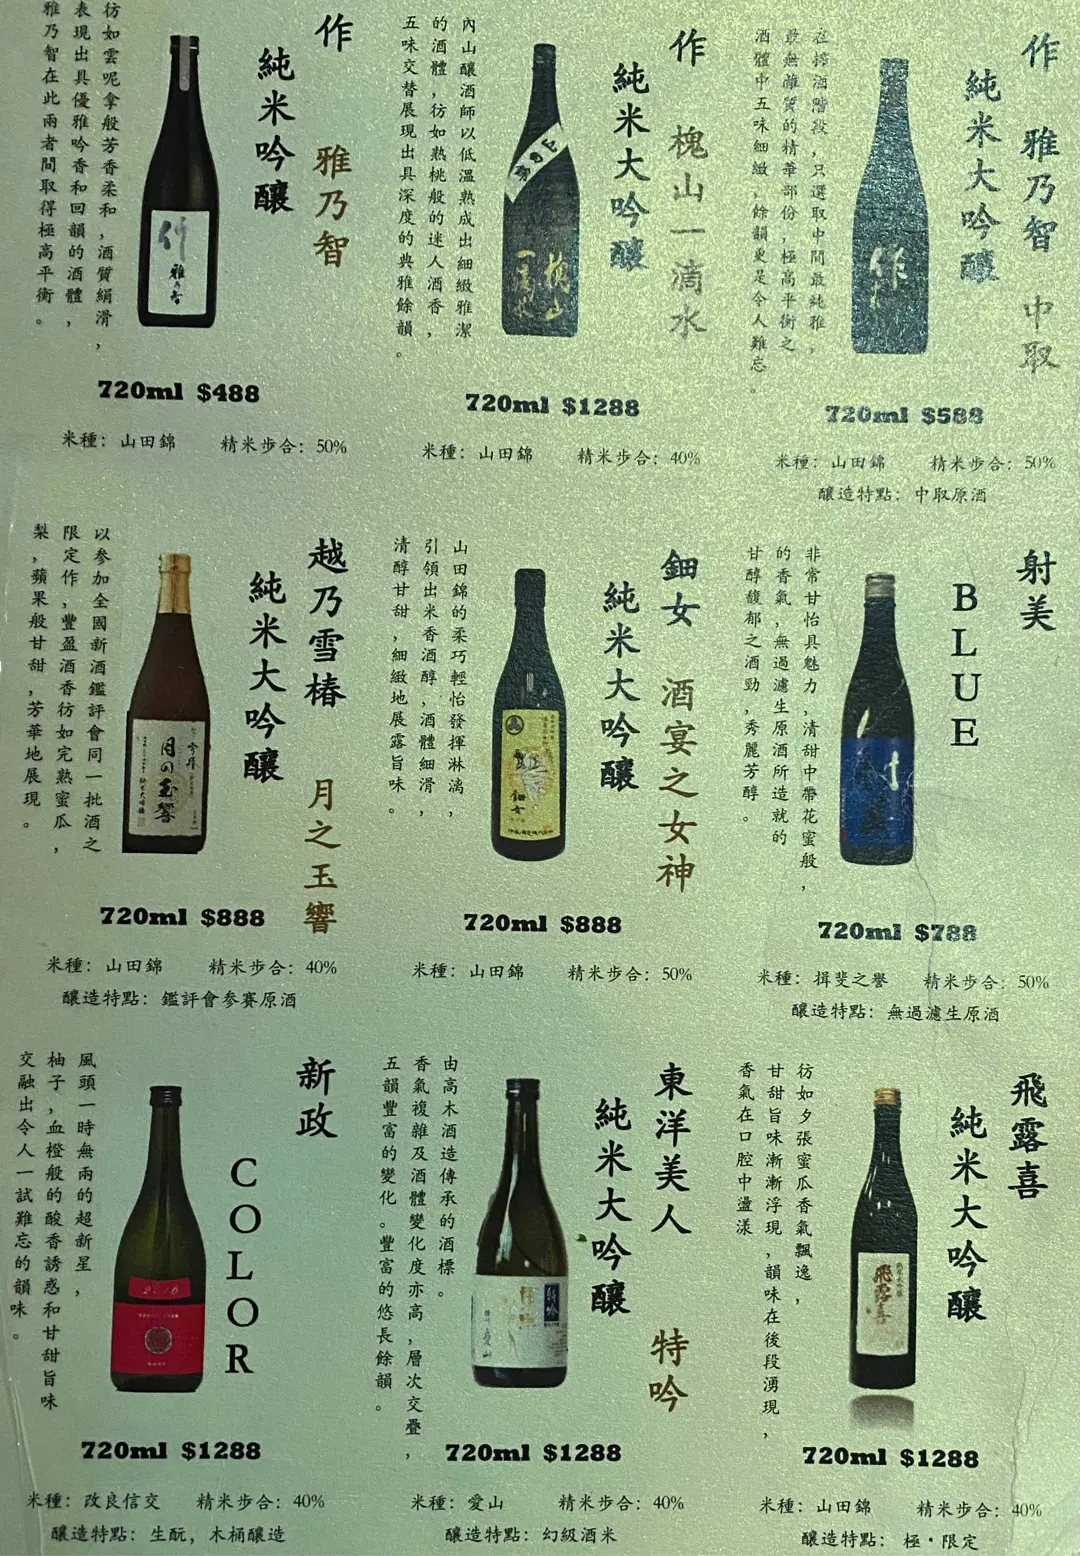 作 雅乃智 中取
純米大吟釀
在榨酒階段，只選取中間最純雅，
最無雜質的精華部份，極高平衡之
酒體中五味細緻，餘韻更是令人難忘。
720ml $588
米種：山田錦 精米步合：50%
釀造特點：中取原酒
作 槐山一滴水
純米大吟釀
內山釀酒師以低溫熟成出細緻雅潔
的酒體，彷如熟桃般的迷人酒香，
五味交替展現出具深度的典雅餘韻。
槐山
一滴水
720ml $1288
米種：山田錦 精米步合：40%
作 雅乃智
純米吟釀
彷如雲呢拿般芳香柔和，酒質絹滑，
表現出具優雅吟香和回韻的酒體，
雅乃智在此兩者間取得極高平衡。
作
雅乃智
720ml $488
米種：山田錦 精米步合：50%
射美
BLUE
非常甘怡具魅力，清甜中帶花蜜般，
的香氣，無過濾生原酒所造就的
甘醇馥郁之酒勁，秀麗芳醇。
720ml $788
米種：揖斐之譽 精米步合：50%
釀造特點：無過濾生原酒
鈿女 酒宴之女神
純米大吟釀
山田錦的柔巧輕怡發揮淋漓，
引領出米香酒醇，酒體細滑，
清醇甘甜，細緻地展露旨味。
鈿女
720ml $888
米種：山田錦 精米步合：50%
越乃雪椿 月之玉響
純米大吟釀
以參加全國新酒鑑評會同一批酒之
限定作，豐盈酒香彷如完熟蜜瓜，
梨，蘋果般甘甜，芳華地展現。
月の玉響
720ml $888
米種：山田錦 精米步合：40%
釀造特點：鑑評會參賽原酒
飛露喜
純米大吟釀
彷如夕張蜜瓜香氣飄逸，
甘甜旨味漸漸浮現，韻味在後段湧現，
香氣在口腔中盪漾
飛露喜
720ml $1288
米種：山田錦 精米步合：40%
釀造特點：極・限定
東洋美人 特吟
純米大吟釀
由高木酒造傳承的酒標。
香氣複雜及酒體變化度亦高，層次交疊，
五韻豐富的變化。豐富的悠長餘韻。
特吟
720ml $1288
米種：愛山 精米步合：40%
釀造特點：幻級酒米
新政
COLOR
風頭一時無兩的超新星，
柚子，血橙般的酸香誘惑和甘甜旨味
交融出令人一試難忘的韻味。
2016
720ml $1288
米種：改良信交 精米步合：40%
釀造特點：生酛，木桶釀造